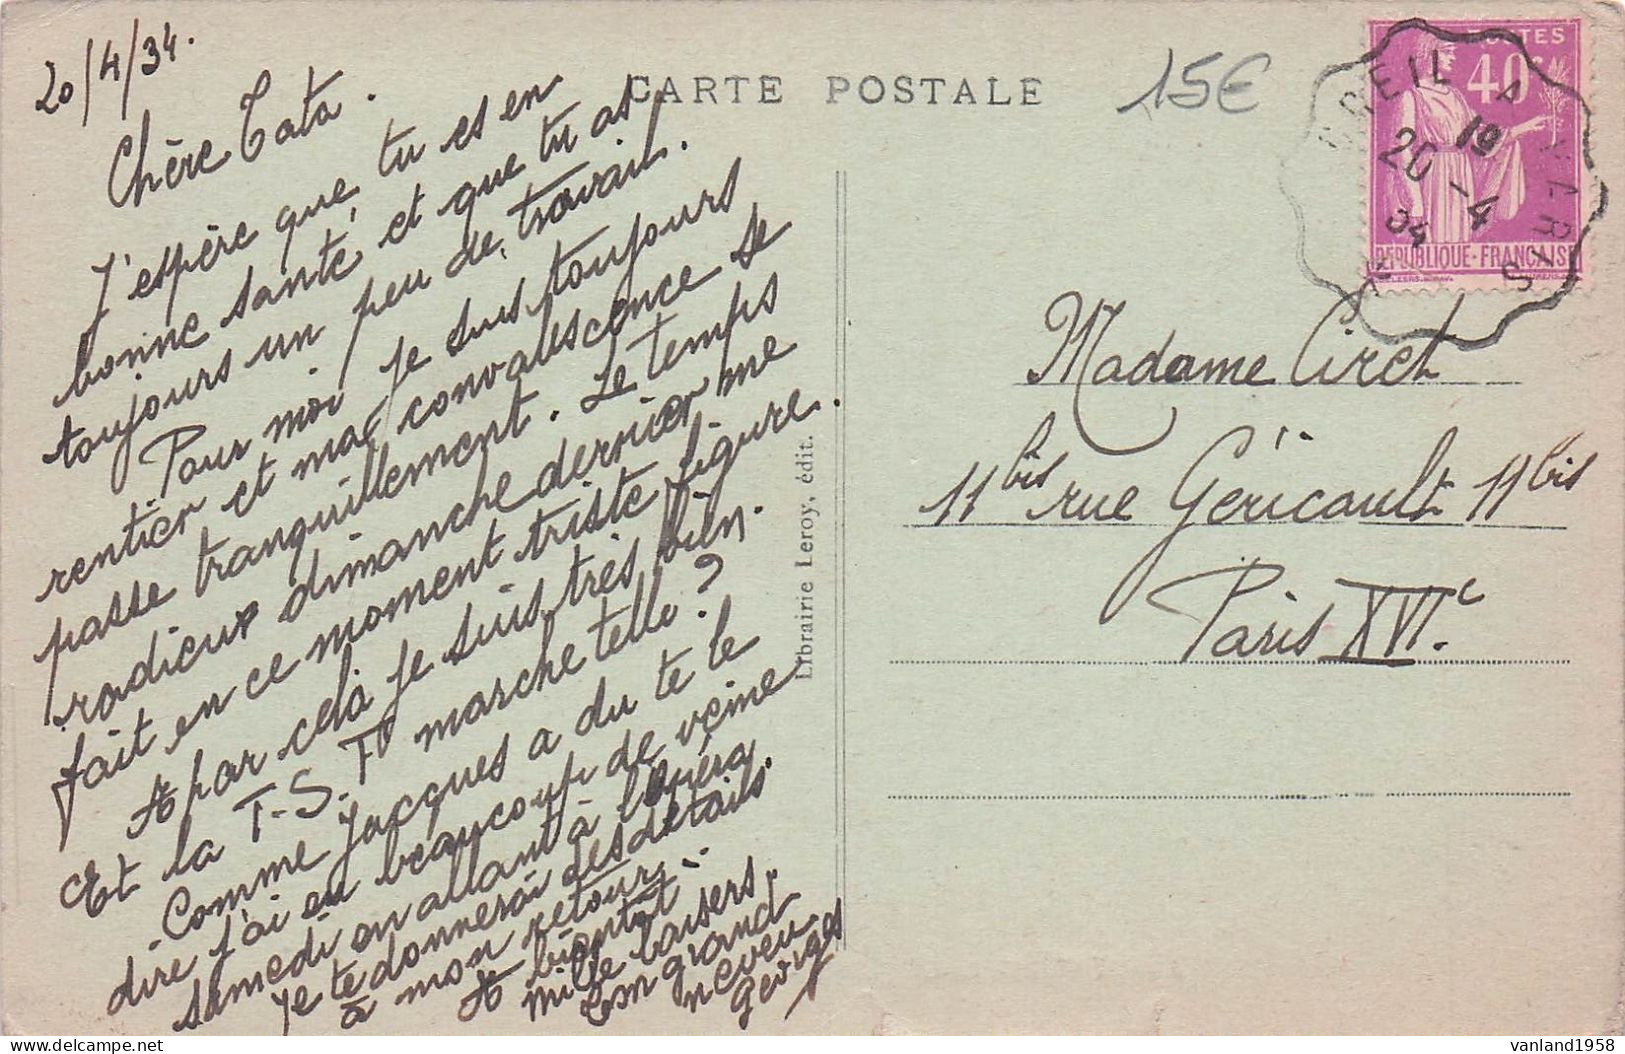 20/4/34.
CARTE POSTALE
15€
Chère Tata.
J'espère que tu es en
bonne santé et que tu as
toujours un peu de travail.
Pour moi je suis toujours
rentier et ma convalescence se
passe tranquillement. Le temps
radieux dimanche dernier me
fait en ce moment triste figure.
A par celà je suis très bien.
Et la T-S. F marche telle?
Comme Jacques a du te le
dire j'ai eu beaucoup de veine
samedi en allant à l'opéra
je te donnerai des détails
à mon retour.
A bientôt
Mille baisers,
Ton grand
neveu
Georges
Librairie Leroy, édit.
POSTES
40
RÉPUBLIQUE·FRANÇAISE
CREIL A
19
20-4
34
Madame Ciret
11bis rue Géricault 11bis
Paris XVIe
vanland1958
delcampe.net